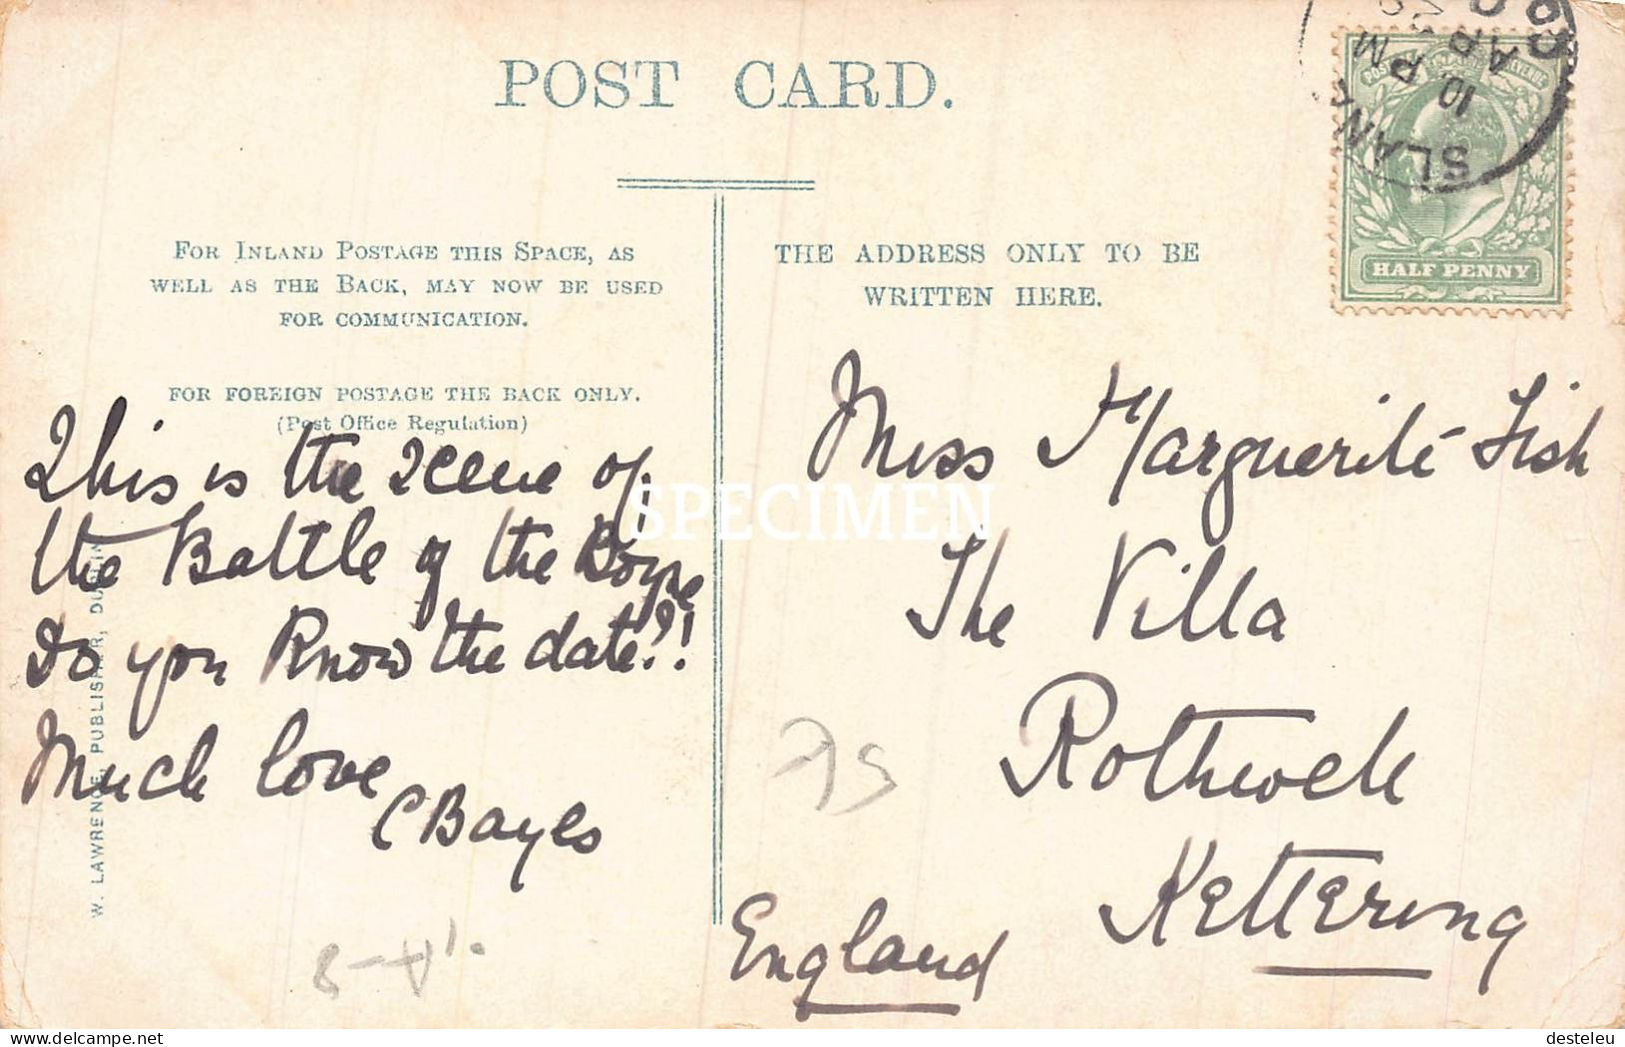 POST CARD.
FOR INLAND POSTAGE THIS SPACE, AS
WELL AS THE BACK, MAY NOW BE USED
FOR COMMUNICATION.
FOR FOREIGN POSTAGE THE BACK ONLY.
(Post Office Regulation)
THE ADDRESS ONLY TO BE
WRITTEN HERE.
This is the scene of
the Battle of the Boyne
Do you know the date?!
Much love
C Bayes
Miss Marguerite Fish
The Villa
Rothwell
Kettering
England
W. LAWRENCE, PUBLISHER, DUBLIN
HALF PENNY
SLANE
10 PM
SPECIMEN
delcampe.net
desteleu